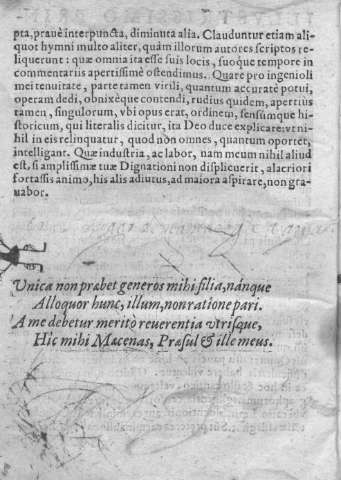 pta, prauè interpuncta, diminuta alia. Clauduntur etiam ali-
quot hymni multo aliter, quàm illorum autores scriptos re-
liquerunt: quæ omnia ita esse suis locis, suoque tempore in
commentariis apertissimè ostendimus. Quare pro ingenioli
mei tenuitate, parte tamen virili, quantum accuratè potui,
operam dedi, obnixéque contendi, rudius quidem, apertius
tamen, singulorum, vbi opus erat, ordinem, sensúmque hi-
storicum, qui literalis dicitur, ita Deo duce explicare: vt ni-
hil in eis relinquatur, quod nòn omnes, quantum oportet,
intelligant. Quæ industria, ac labor, nam meum nihil aliud
est, si amplissimæ tuæ Dignationi non displicuerit, alacriori
fortassis animo, his aliis adiutus, ad maiora aspirare, non gra-
uabor.
Vnica non præbet generos mihi filia, nánque
Alloquor hunc, illum, non ratione pari.
A me debetur meritò reuerentia vtrisque,
Hic mihi Mæcenas, Præsul & ille meus.